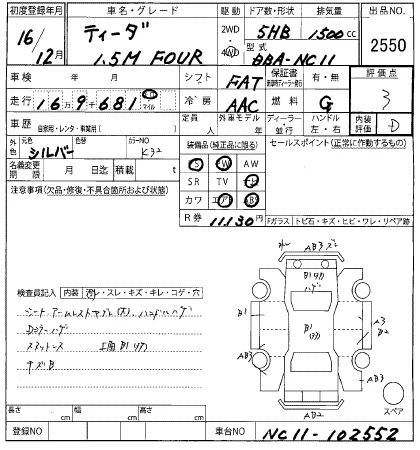 初度登録年月 車名・グレード 駆動 ドア数・形状 排気量 出品NO.
16/12月 ティーダ 1.5M FOUR 2WD・4WD 5HB 1500cc 2550
型式 DBA-NC11
車検 年 月 シフト FAT 保証書 有・無 評価点
走行 169681 マイル 冷房 AAC 燃料 G 3
車歴 自家用・レンタ・事業用( ) 定員 人 外車モデル 年 ディーラー・並行 ハンドル 左・右 内装評価 D
外色 元色 シルバー 色替 カラーNO K32 装備品(純正品に限る) セールスポイント(正常に作動するもの)
名義変更期限 月 日迄 積載 t
PS PW AW
SR TV ナビ
カワ エアB ABS
注意事項(欠品・修復・不具合箇所および状態)
R券 11,130円
Fガラス トビ石・キズ・ヒビ・ワレ・リペア跡
AB3
B1
A3
B2
AB3
AB3
AB2
スペア
検査員記入 内装 汚レ・スレ・キズ・キレ・コゲ・穴
シートアームレスト
長さ cm 幅 cm 高さ cm
登録NO 車台NO NC11-102552